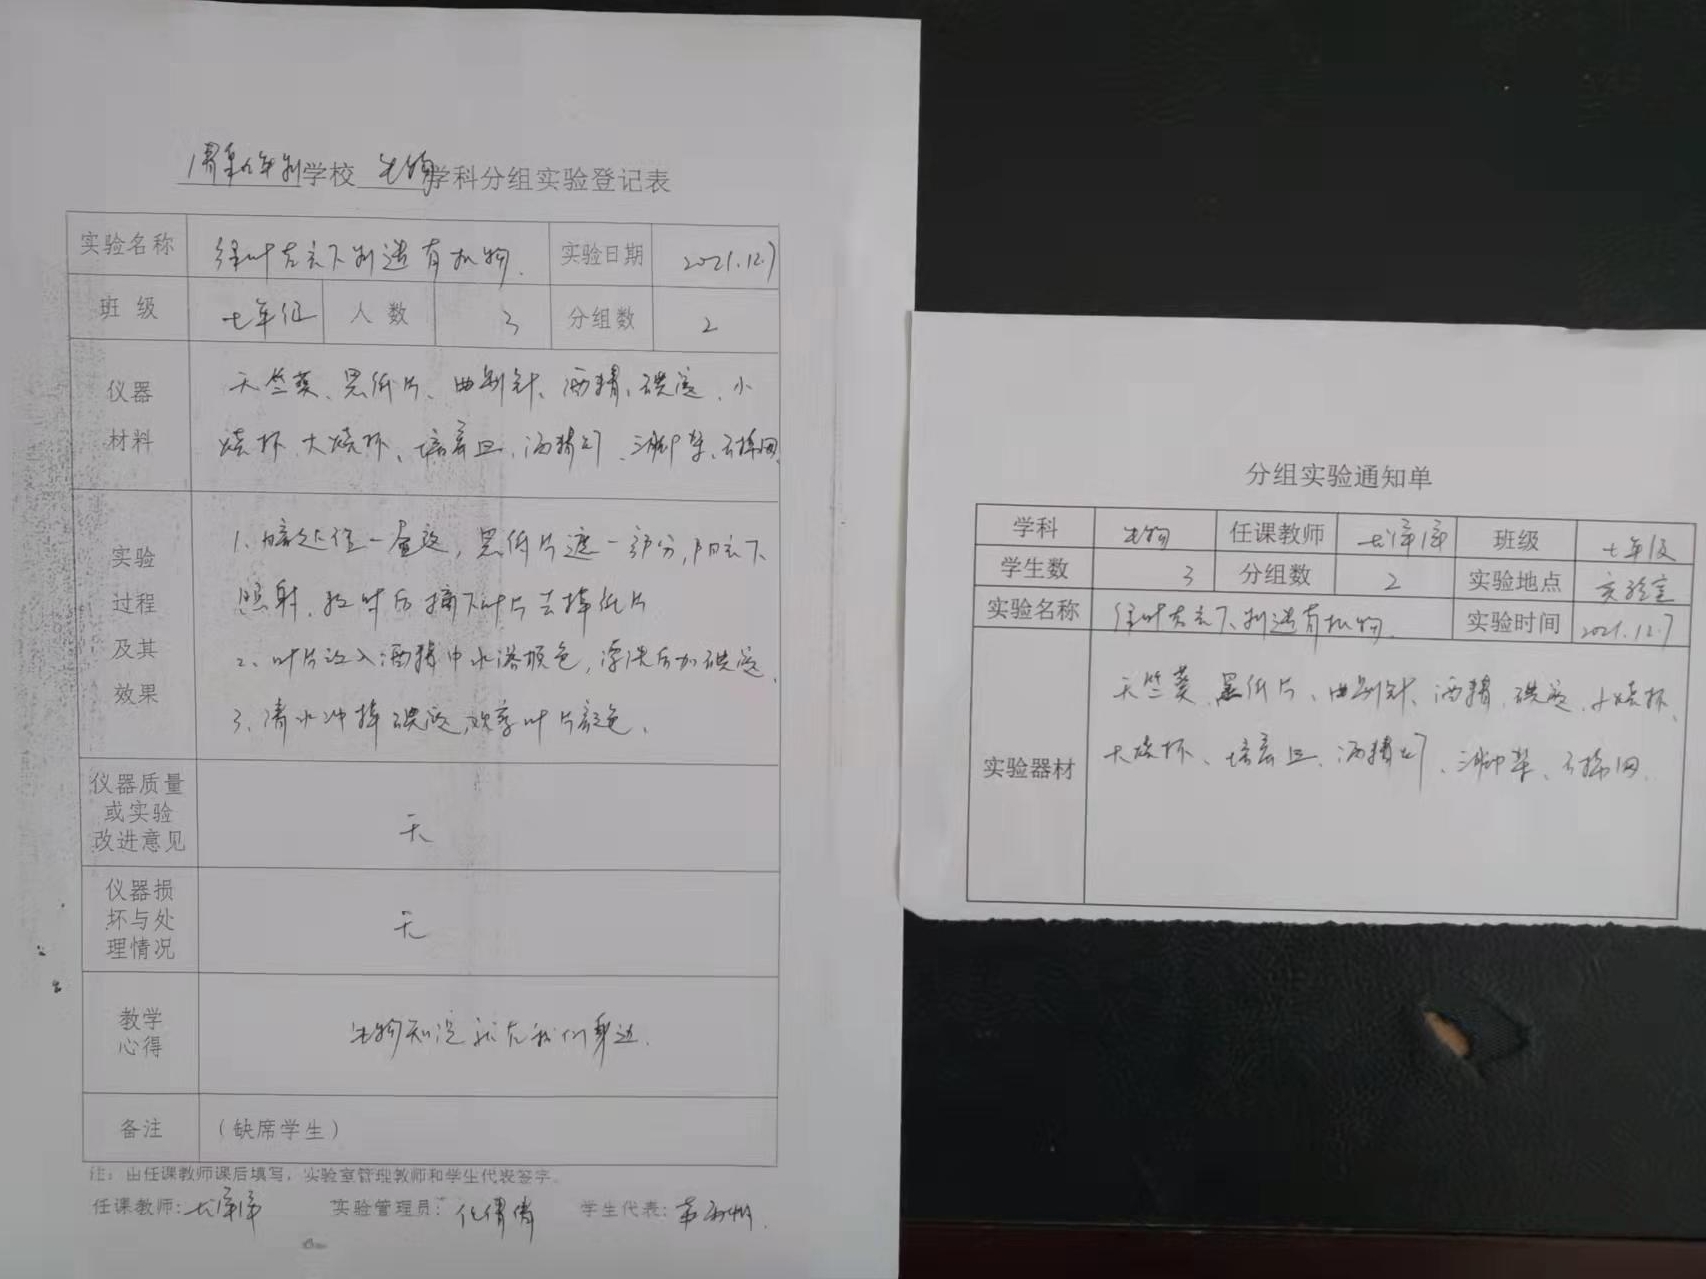 学校 生物学科分组实验登记表
实验名称 绿叶在光下制造有机物. 实验日期 2021.12.7
班 级 七年级 人 数 3 分组数 2
仪器
材料
天竺葵、黑纸片、曲别针、酒精、碘液、小
烧杯、大烧杯、培养皿、酒精灯、三脚架、石棉网
实验
过程
及其
效果
1、暗处理一昼夜,黑纸片遮一部分,阳光下
照射,数时后摘下叶片去掉纸片
2、叶片放入酒精中水浴脱色,漂洗后加碘液.
3、清水冲掉碘液,观察叶片颜色.
仪器质量
或实验
改进意见
无
仪器损
坏与处
理情况
无
教学
心得
生物知识就在我们身边.
备注 (缺席学生)
注:由任课教师课后填写,实验室管理教师和学生代表签字。
任课教师: 实验管理员: 学生代表:
分组实验通知单
学科 生物 任课教师 班级 七年级
学生数 3 分组数 2 实验地点 实验室
实验名称 绿叶在光下制造有机物. 实验时间 2021.12.7
实验器材
天竺葵、黑纸片、曲别针、酒精、碘液、小烧杯、
大烧杯、培养皿、酒精灯、三脚架、石棉网.